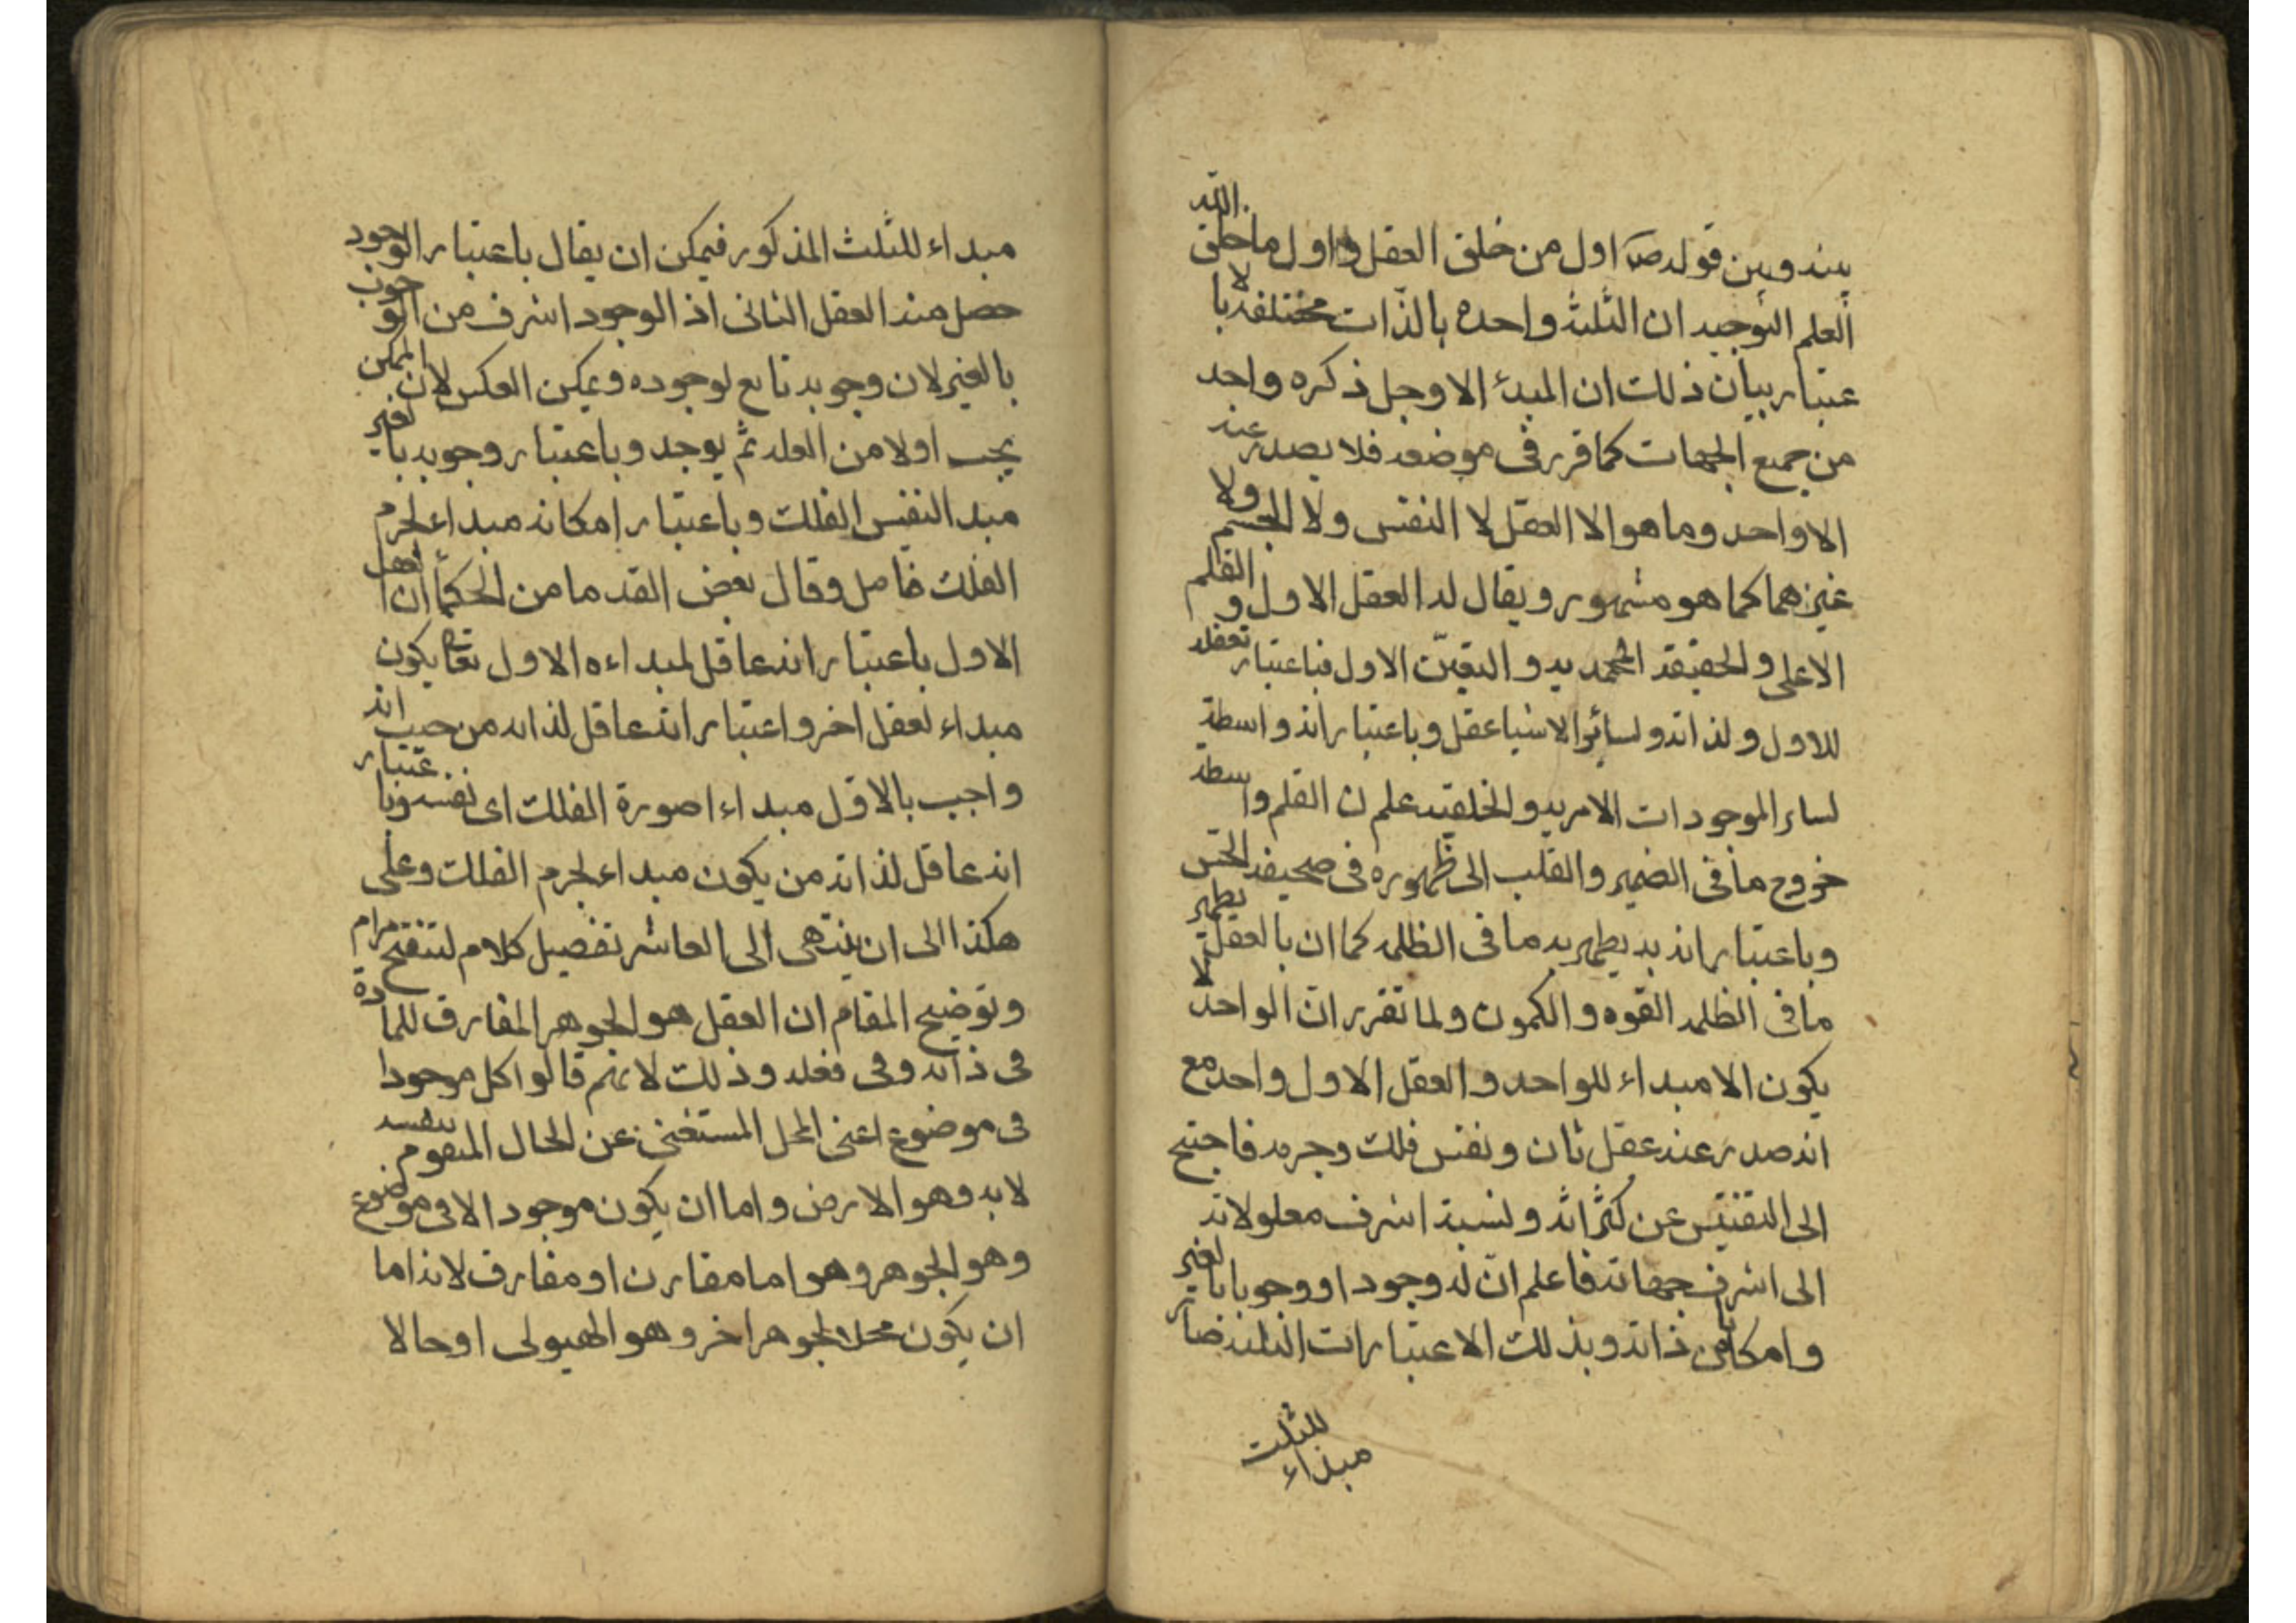 بينه وبين قوله صَ اول من خلق العقل واول ما خلق الله
العلم التوجيه ان الثلثه واحده بالذّات مختلفه بالا
عتبار بيان ذلك ان المبدأ الا وجل ذكره واحد
من جميع الجهات كما قرر فى موضعه فلا يصدر عنه
الا واحد وما هو الا العقل لا النفس ولا الجسم ولا
غيرهما كما هو مشهور ويقال له العقل الاول و القلم
الاعلى والحقيقه المحمديه والتعيّن الاول فباعتبار تعقله
للاول ولذاته ولسائر الاشيا عقل وباعتبار انه واسطة
لساير الموجودات الامريه والخلقيه علم ن القلم واسطه
خروج ما فى الضمير والقلب الى ظهوره فى صحيفه الحس
وباعتبار انه به يظهر به ما فى الظلمه كما ان بالعقل يظهر
ما فى الظلمه القوه والكمون ولما تقرر انّ الواحد لا
يكون الا مبداء للواحد والعقل الاول واحد مع
انه صدر عنه عقل ثان ونفس فلك وجرمه فاحتيج
الى التفتيش عن كثراته ونسبة اشرف معلولاته
الى اشرف جهاته فاعلم انّ له وجودا ووجوبا بالغير
وامكانا من ذاته وبذلك الاعتبارات الثلثه صار
للثلث
مبداء
مبداء للثلث المذكور فيمكن ان يقال باعتبار الوجود
حصل منه العقل الثانى اذ الوجود اشرف من الوجوب
بالغير لان وجوبه تابع لوجوده ويمكن العكس لان الممكن
يجب اولا من العله ثم يوجد وباعتبار وجوبه بالغير
مبد النفس الفلك وباعتبار امكانه مبداء لجرم
الفلك فامل وقال بعض القدما من الحكمأ ان العقل
الاول باعتبار انه عاقل لمبداءه الاول تعا يكون
مبداء لعقل اخر واعتبار انه عاقل لذاته من حيث انه
واجب بالاول مبداءا صورة الفلك اى نفسه وبا عتبار
انه عاقل لذاته من يكون مبداء لجرم الفلك وعلى
هكذا الى ان ينتهى الى العاشر تفصيل كلام لتنقيح مرام
وتوضيح المقام ان العقل هو الجوهر المفارق للمادة
فى ذاته وفى فعله وذلك لانهم قالوا كل موجودا
فى موضوع اعنى المحل المستغنى عن الحال المتقوم بنفسه
لا به وهو الارض واما ان يكون موجود الا فى موضوع
وهو الجوهر وهو اما مقارن او مفارق لانه اما
ان يكون محلا لجوهر اخر وهو الهيولى او حالا